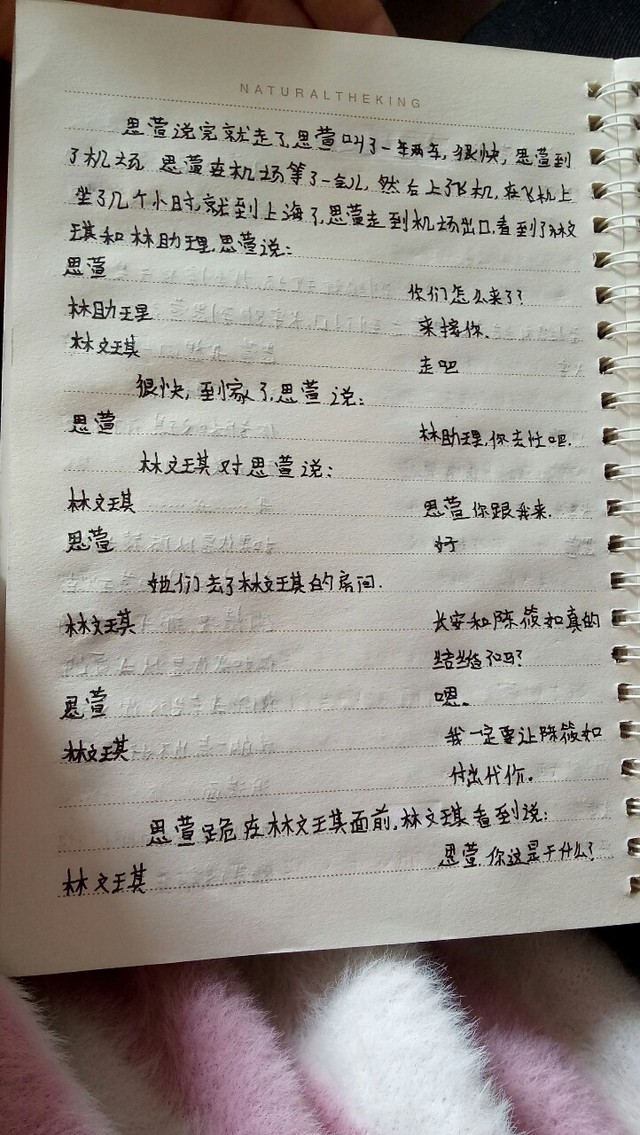 NATURALTHEKING
思萱说完就走了,思萱叫了一辆车,很快,思萱到
了机场 思萱在机场等了一会儿,然后上了飞机,在飞机上
坐了几个小时,就到上海了,思萱走到机场出口,看到了林文
琪和林助理,思萱说:
思萱 你们怎么来了?
林助理 来接你.
林文琪 走吧
很快,到家了,思萱说:
思萱 林助理,你去忙吧.
林文琪对思萱说:
林文琪 思萱你跟我来.
思萱 好
她们去了林文琪的房间.
林文琪 长安和陈筱如真的
结婚了吗?
思萱 嗯。
林文琪 我一定要让陈筱如
付出代价。
思萱跪在林文琪面前,林文琪看到说:
林文琪 思萱,你这是干什么?